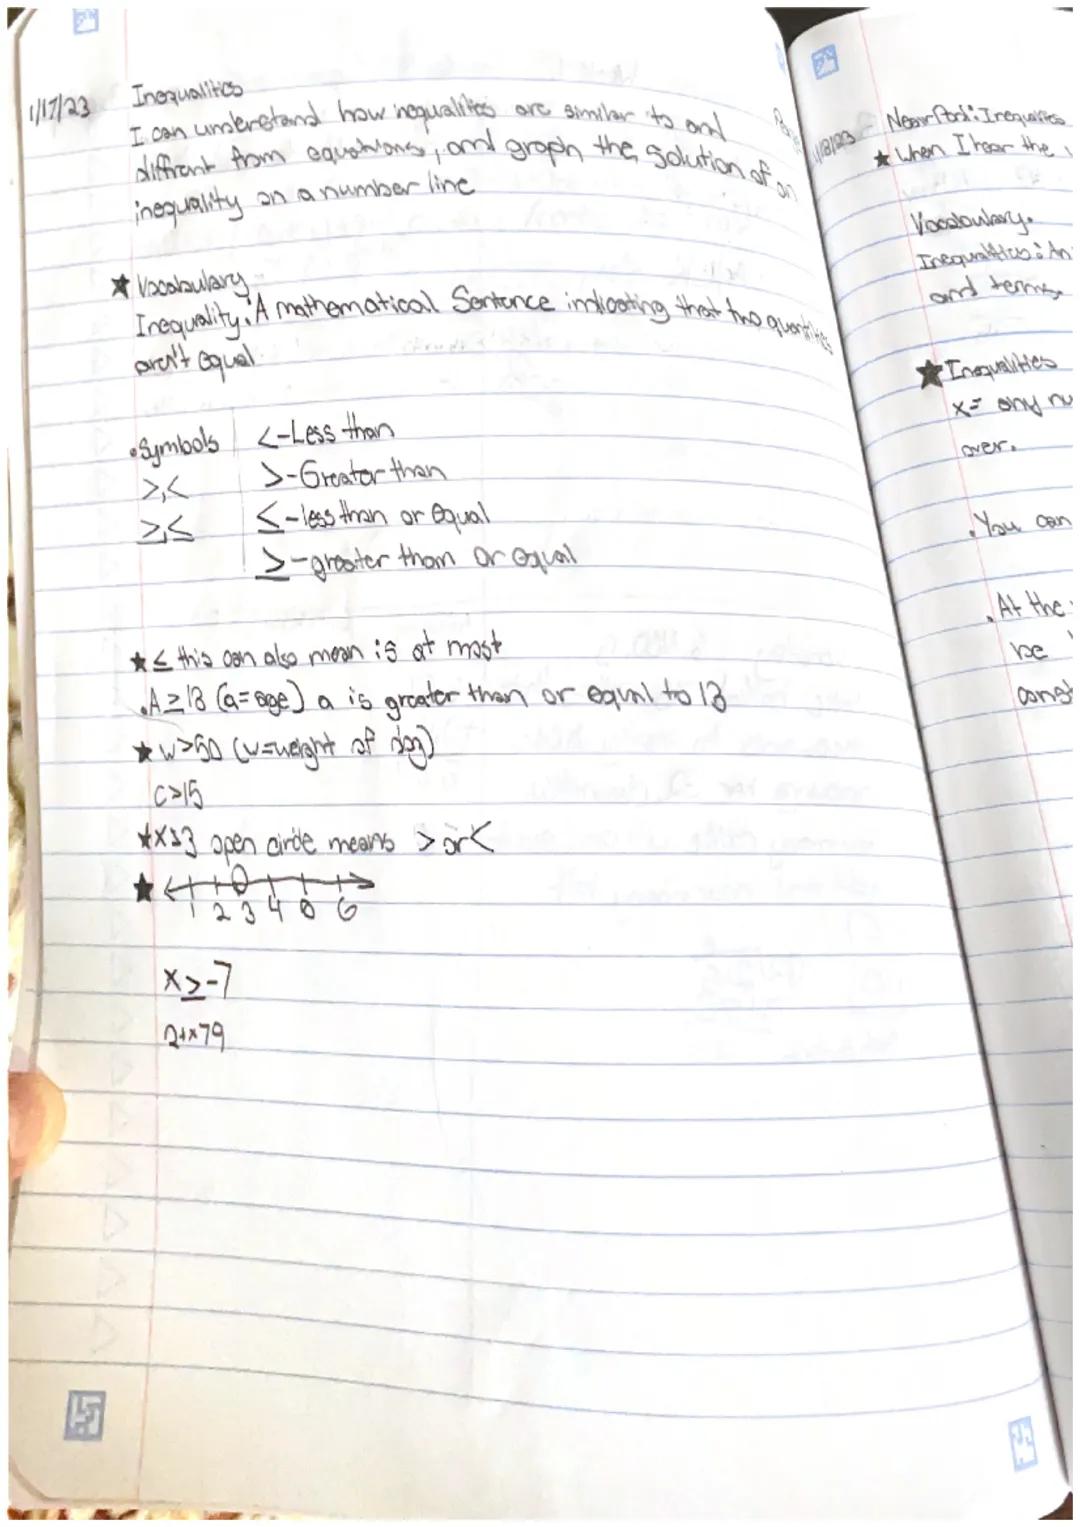 1/17/23 Inequalities
I can understand how inequalities are similar to and
diffrent from equations, and graph the solution of an
inequality on a number line
★ Vocabulary
Inequality: A mathematical Sentence indicating that two quantities
aren't equal.
• Symbols <-Less than
>,< >-Greater than
≥,≤ ≤-less than or equal
≥-greater than or equal
★ ≤ this can also mean is at most
• A≥13 (a=age) a is greater than or equal to 13
★ w>50 (w=weight of dog)
C>15
open circle means > or <
★ 1 2 3 4 5 6
x≥-7
1/18/23 Near Pod: Inequalities
★ When I hear the
Vocabulary•
Inequalities: An
and terms.
★ Inequalities
x= any nu
over.
• You can
• At the
be
const